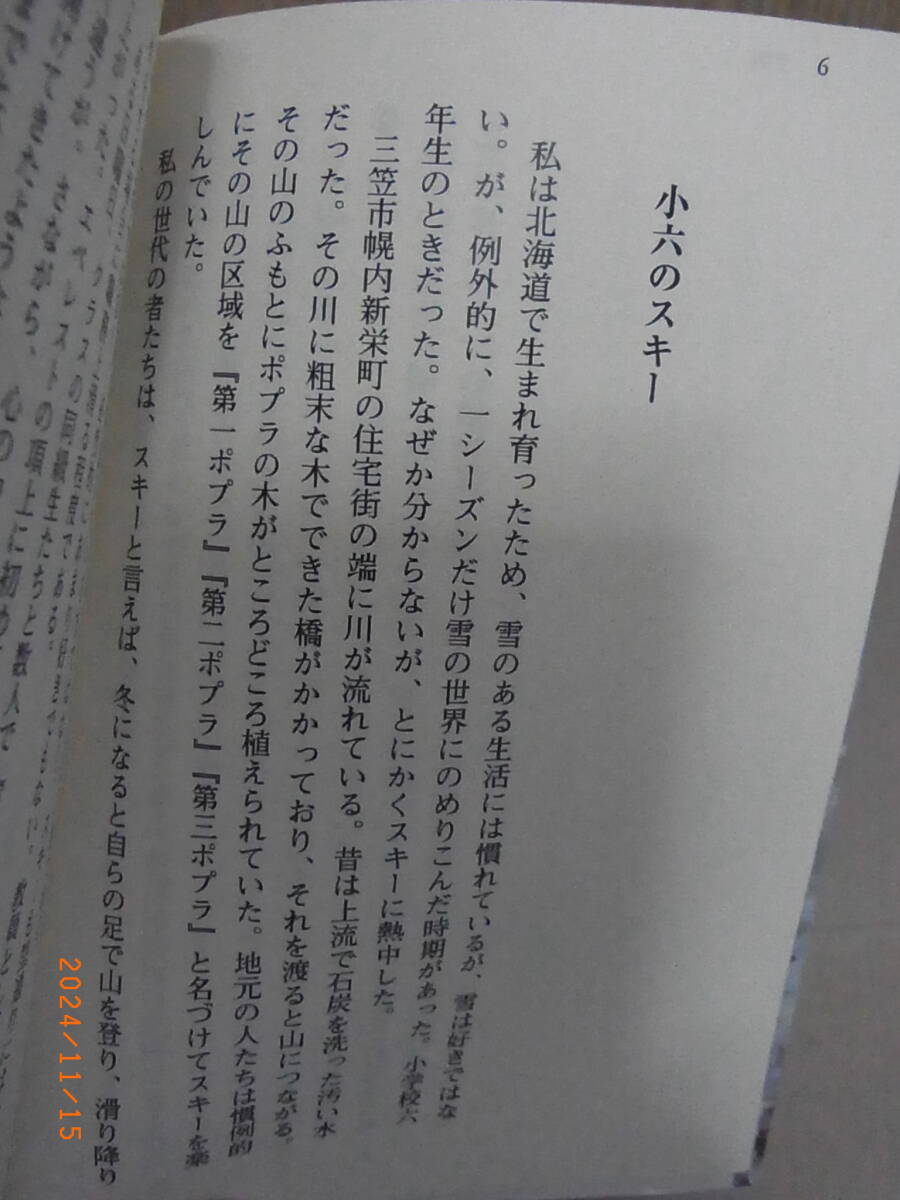 6
小六のスキー
私は北海道で生まれ育ったため、雪のある生活には慣れているが、雪は好きではな
い。が、例外的に、一シーズンだけ雪の世界にのめりこんだ時期があった。小学校六
年生のときだった。なぜか分からないが、とにかくスキーに熱中した。
三笠市幌内新栄町の住宅街の端に川が流れている。昔は上流で石炭を洗った汚い水
だった。その川に粗末な木でできた橋がかかっており、それを渡ると山につながる。
その山のふもとにポプラの木がところどころ植えられていた。地元の人たちは慣例的
にその山の区域を『第一ポプラ』『第二ポプラ』『第三ポプラ』と名づけてスキーを楽
しんでいた。
私の世代の者たちは、スキーと言えば、冬になると自らの足で山を登り、滑り降り
クラスの同級生たちと数人で
エベレストの頂上に初め
さながら、心の
けてきたような
2024/11/15